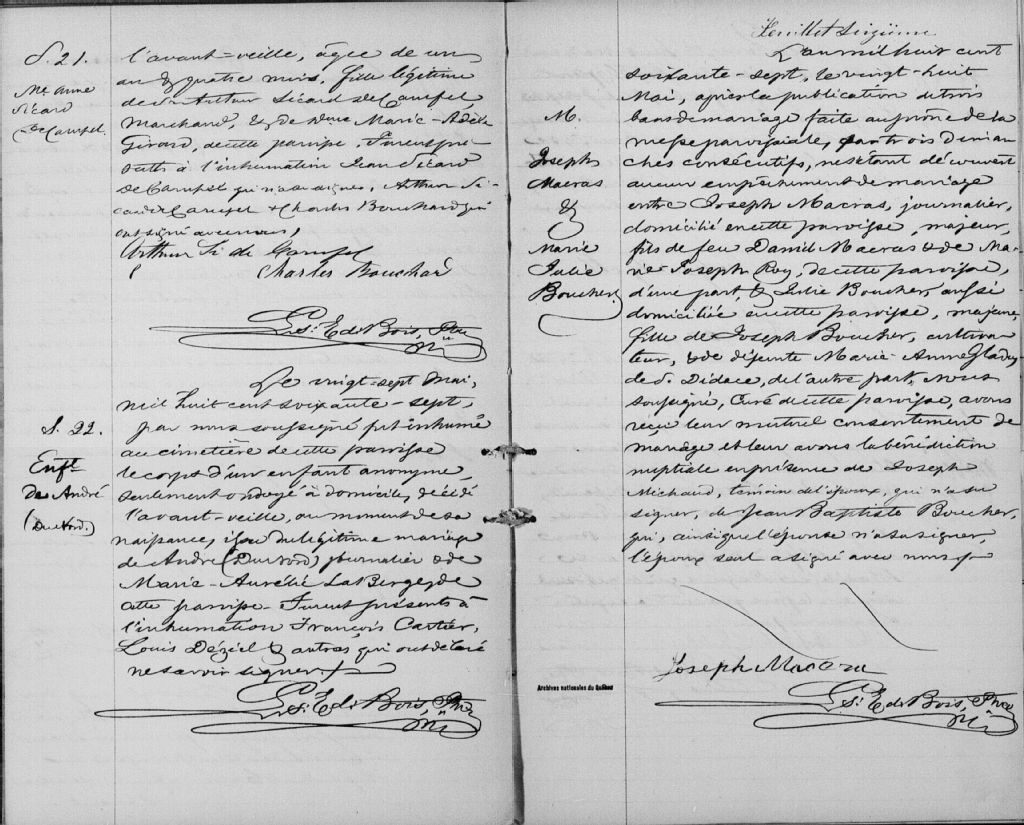 S. 21.
Me. Anne
Sicard
de Carufel.
l'avant-veille, âgée de un
an & quatre mois, fille légitime
de Sr. Arthur Sicard de Carufel,
Marchand, & de Dme. Marie-Adèle
Girard, de cette paroisse. Furent pré-
sents à l'inhumation Jean Sicard
de Carufel qui n'a su signer, Arthur Si-
card de Carufel & Charles Bouchard qui
ont signé avec nous,
Arthur Si de Carufel
Charles Bouchard
Ls. E. de Bois, Ptre
S. 22.
Enft.
de André
(Du Nord.)
Le vingt-sept Mai,
mil huit cent soixante-sept,
par nous soussigné fut inhumé
au cimetière de cette paroisse
le corps d'un enfant anonyme,
seulement ondoyé à domicile, décédé
l'avant-veille, au moment de sa
naissance, issu du légitime mariage
de André (Du Nord), journalier & de
Marie-Aurélie La Berge, de
cette paroisse. Furent présents à
l'inhumation François Cartier,
Louis Déziel & autres qui ont déclaré
ne savoir signer.
Ls. E. de Bois, Ptre
Feuillet sixième
M.
Joseph
Macras
&
Marie
Julie
Boucher,
L'an mil huit cent
soixante-sept, le vingt-huit
Mai, après la publication de trois
bans de mariage faite au prône de la
messe paroissiale, par trois diman-
ches consécutifs, ne s'étant découvert
aucun empêchement de mariage
entre Joseph Macras, journalier,
domicilié en cette paroisse, majeur,
fils de feu Daniel Macras & de Ma-
rie Joseph Roy, de cette paroisse,
d'une part, & Julie Boucher, aussi
domiciliée en cette paroisse, majeure,
fille de Joseph Boucher, cultiva-
teur, & de défunte Marie-Anne
de S. Didace, de l'autre part, nous
soussigné, Curé de cette paroisse, avons
reçu leur mutuel consentement de
mariage et leur avons la bénédiction
nuptiale en présence de Joseph
Michaud, témoin de l'époux, qui n'a su
signer, de Jean Baptiste Boucher,
qui, ainsi que l'épouse n'a su signer,
l'époux seul a signé avec nous
Joseph
Ls. E. de Bois, Ptre
Archives nationales du Québec